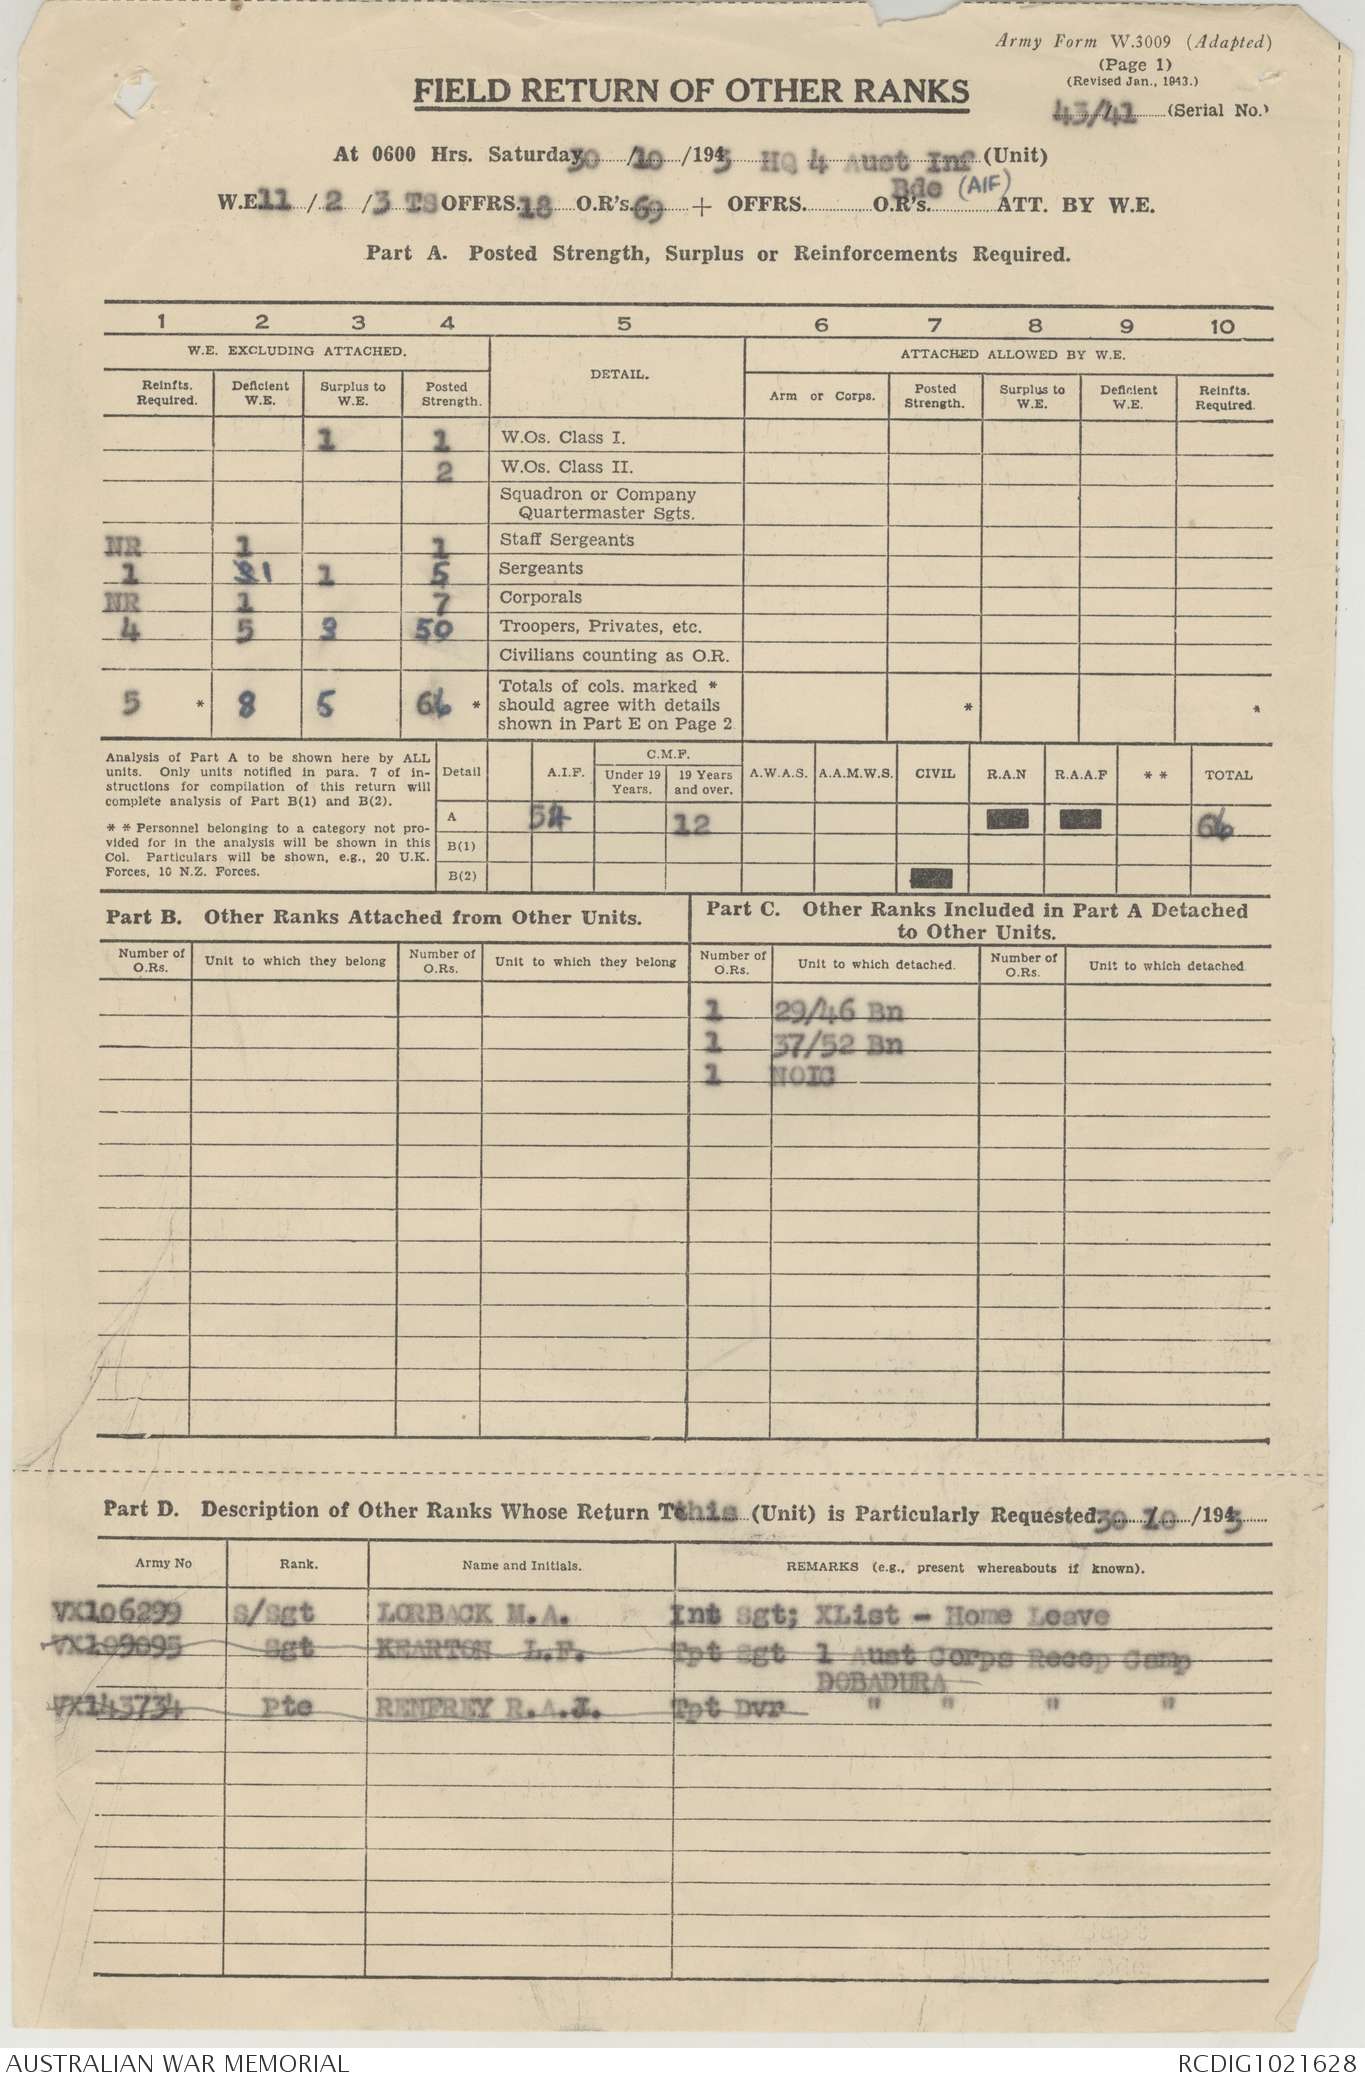 Army Form W.3009 (Adapted)
(Page 1)
(Revised Jan., 1943.)
FIELD RETURN OF OTHER RANKS
43/41 (Serial No.)
At 0600 Hrs. Saturday 30/10/1943 HQ 4 Aust Inf (Unit)
Bde (AIF)
W.E. 11/2/3 TS OFFRS. 18 O.R's. 69 + OFFRS. O.R's. ATT. BY W.E.
Part A. Posted Strength, Surplus or Reinforcements Required.
1 2 3 4 5 6 7 8 9 10
W.E. EXCLUDING ATTACHED. DETAIL. ATTACHED ALLOWED BY W.E.
Reinfts. Required. Deficient W.E. Surplus to W.E. Posted Strength. Arm or Corps. Posted Strength. Surplus to W.E. Deficient W.E. Reinfts. Required.
1 1 W.Os. Class I.
2 W.Os. Class II.
Squadron or Company
Quartermaster Sgts.
NR 1 1 Staff Sergeants
1 1 1 5 Sergeants
NR 1 7 Corporals
4 5 3 50 Troopers, Privates, etc.
Civilians counting as O.R.
5 * 8 5 66 * Totals of cols. marked *
should agree with details * *
shown in Part E on Page 2
Analysis of Part A to be shown here by ALL
units. Only units notified in para. 7 of in-
structions for compilation of this return will
complete analysis of Part B(1) and B(2).
* * Personnel belonging to a category not pro-
vided for in the analysis will be shown in this
Col. Particulars will be shown, e.g., 20 U.K.
Forces, 10 N.Z. Forces.
Detail A.I.F. C.M.F. A.W.A.S. A.A.M.W.S. CIVIL R.A.N R.A.A.F * * TOTAL
Under 19 Years. 19 Years and over.
A 54 12 66
B(1)
B(2)
Part B. Other Ranks Attached from Other Units.
Part C. Other Ranks Included in Part A Detached
to Other Units.
Number of O.Rs. Unit to which they belong Number of O.Rs. Unit to which they belong Number of O.Rs. Unit to which detached. Number of O.Rs. Unit to which detached
1 29/46 Bn
1 37/52 Bn
1 NOIC
Part D. Description of Other Ranks Whose Return To this (Unit) is Particularly Requested. 30/10/1943
Army No Rank. Name and Initials. REMARKS (e.g., present whereabouts if known).
VX106299 S/Sgt LORBACK M.A. Int Sgt; XList - Home Leave
VX109095 Sgt KEARTON L.F. Tpt Sgt 1 Aust Corps Recep Camp
DOBADURA
VX143734 Pte RENFREY R.A.J. Tpt Dvr " " " "
AUSTRALIAN WAR MEMORIAL
RCDIG1021628